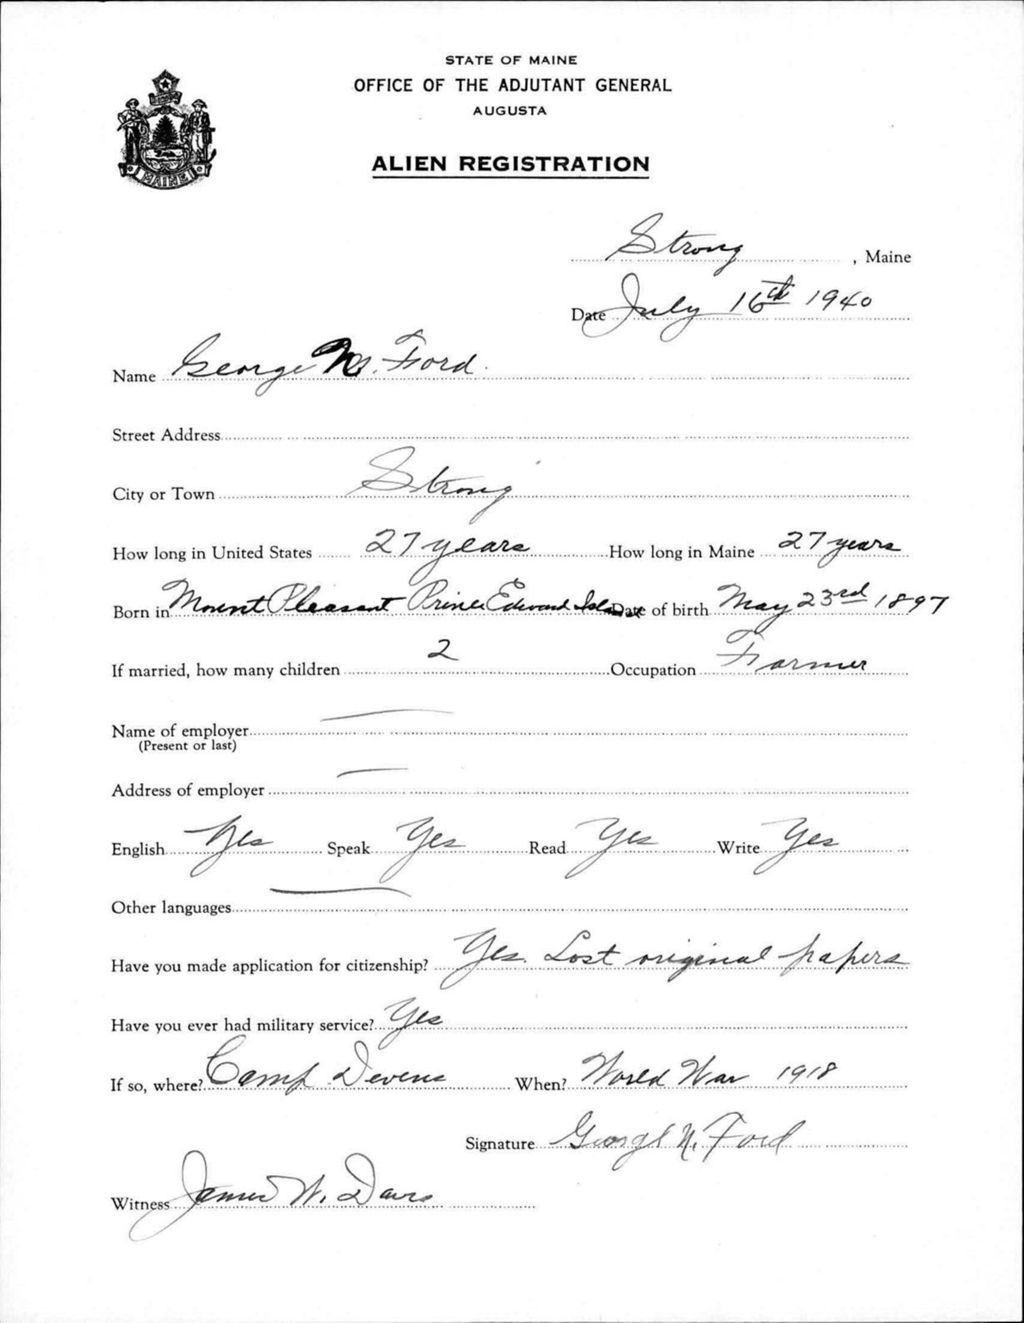 STATE OF MAINE
OFFICE OF THE ADJUTANT GENERAL
AUGUSTA
MAINE
ALIEN REGISTRATION
Strong, Maine
Date July 16th 1940
Name George N. Ford.
Street Address
City or Town Strong
How long in United States 27 years How long in Maine 27 years
Born in Mount Pleasant Prince Edward Island Date of birth May 23rd 1897
If married, how many children 2 Occupation Farmer
Name of employer
(Present or last)
Address of employer
English Yes Speak Yes Read Yes Write Yes
Other languages
Have you made application for citizenship? Yes. Lost original papers
Have you ever had military service? Yes
If so, where? Camp Devens When? World War 1918
Signature George N. Ford
Witness James W. Davis